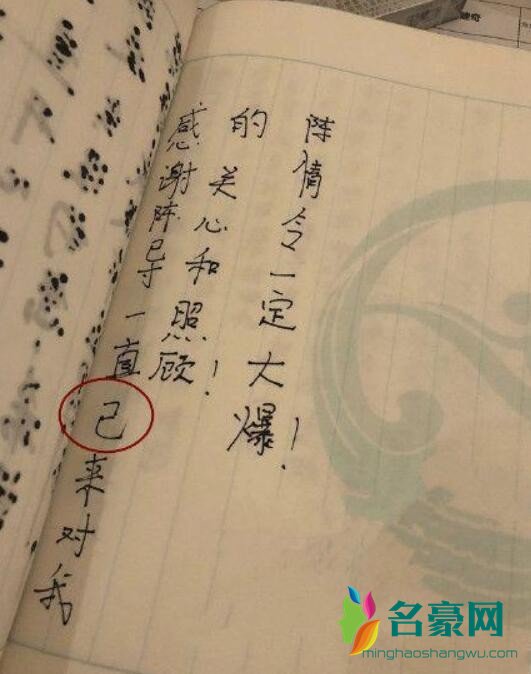 感谢陈导一直己来对我
的关心和照顾！
陈情令一定大爆！
名豪网
minghaoshangwu.com